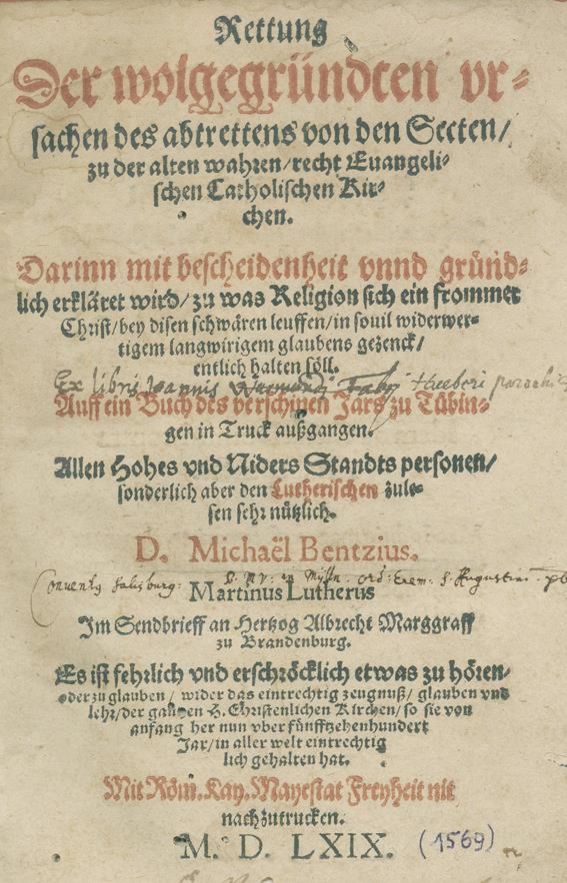 Rettung
Der wolgegründten vr-
sachen des abtrettens von den Secten/
zu der alten wahren/recht Euangeli-
schen Catholischen Kir-
chen.
Darinn mit bescheidenheit vnnd gründ-
lich erkläret wird/zu was Religion sich ein frommer
Christ/bey disen schwären leuffen/in souil widerwer-
tigem langwirigem glaubens gezenck/
entlich halten söll.
Ex libris Ioannis
Auff ein Buch des verschinen Jars zu Tübin-
gen in Truck außgangen.
Allen Hohes vnd Niders Standts personen/
sonderlich aber den Lutherischen zule-
sen sehr nützlich.
D. Michaël Bentzius.
Conventus Salisburg: ord: Erem: S. Augustini
Martinus Lutherus
Im Sendbrieff an Hertzog Albrecht Marggraff
zu Brandenburg.
Es ist fehrlich vnd erschröcklich etwas zu hören-
oder zu glauben/ wider das eintrechtig zeugnuß/ glauben vnd
lehr/der gantzen H. Christenlichen Kirchen/so sie von
anfang her nun vber fünfftzehenhundert
Jar/in aller welt eintrechtig
lich gehalten hat.
Mit Röm. Kay. Mayestat Freyheit nit
nachzutrucken.
M. D. LXIX. (1569)